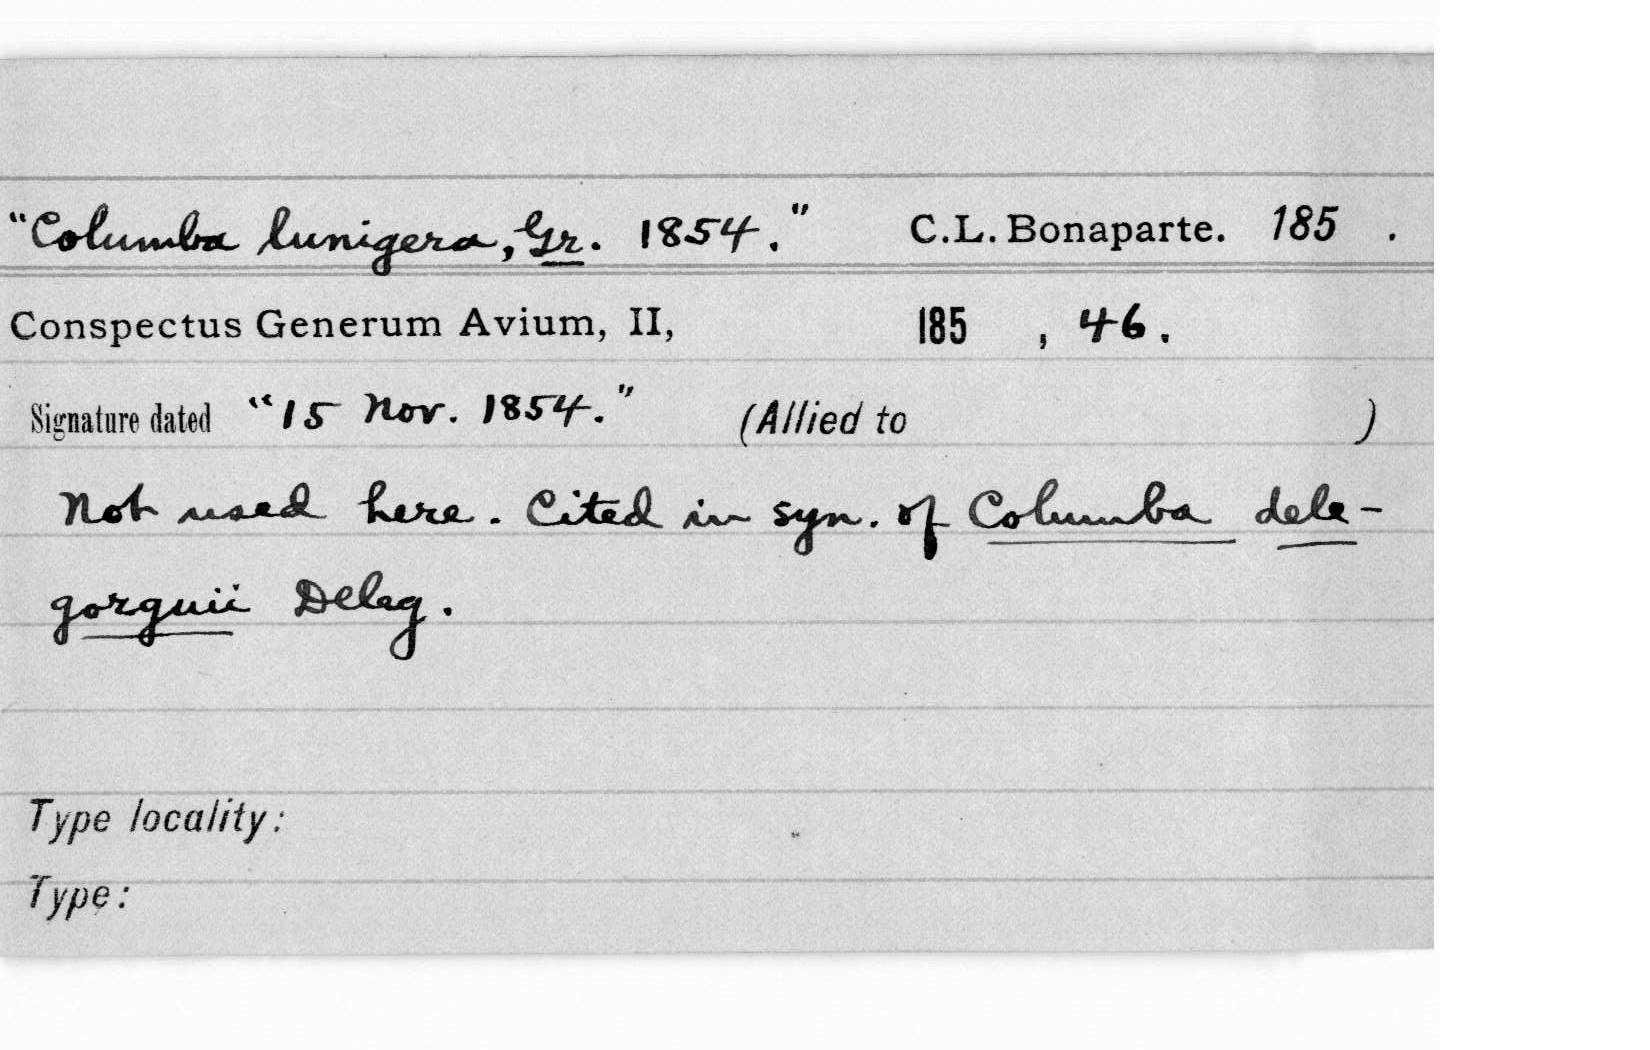 "Columba lunigera, Gr. 1854." C.L. Bonaparte. 185 .
Conspectus Generum Avium, II, 185 , 46.
Signature dated "15 Nov. 1854." (Allied to )
Not used here. Cited in syn. of Columba dele-
gorguii Deleg.
Type locality:
Type: